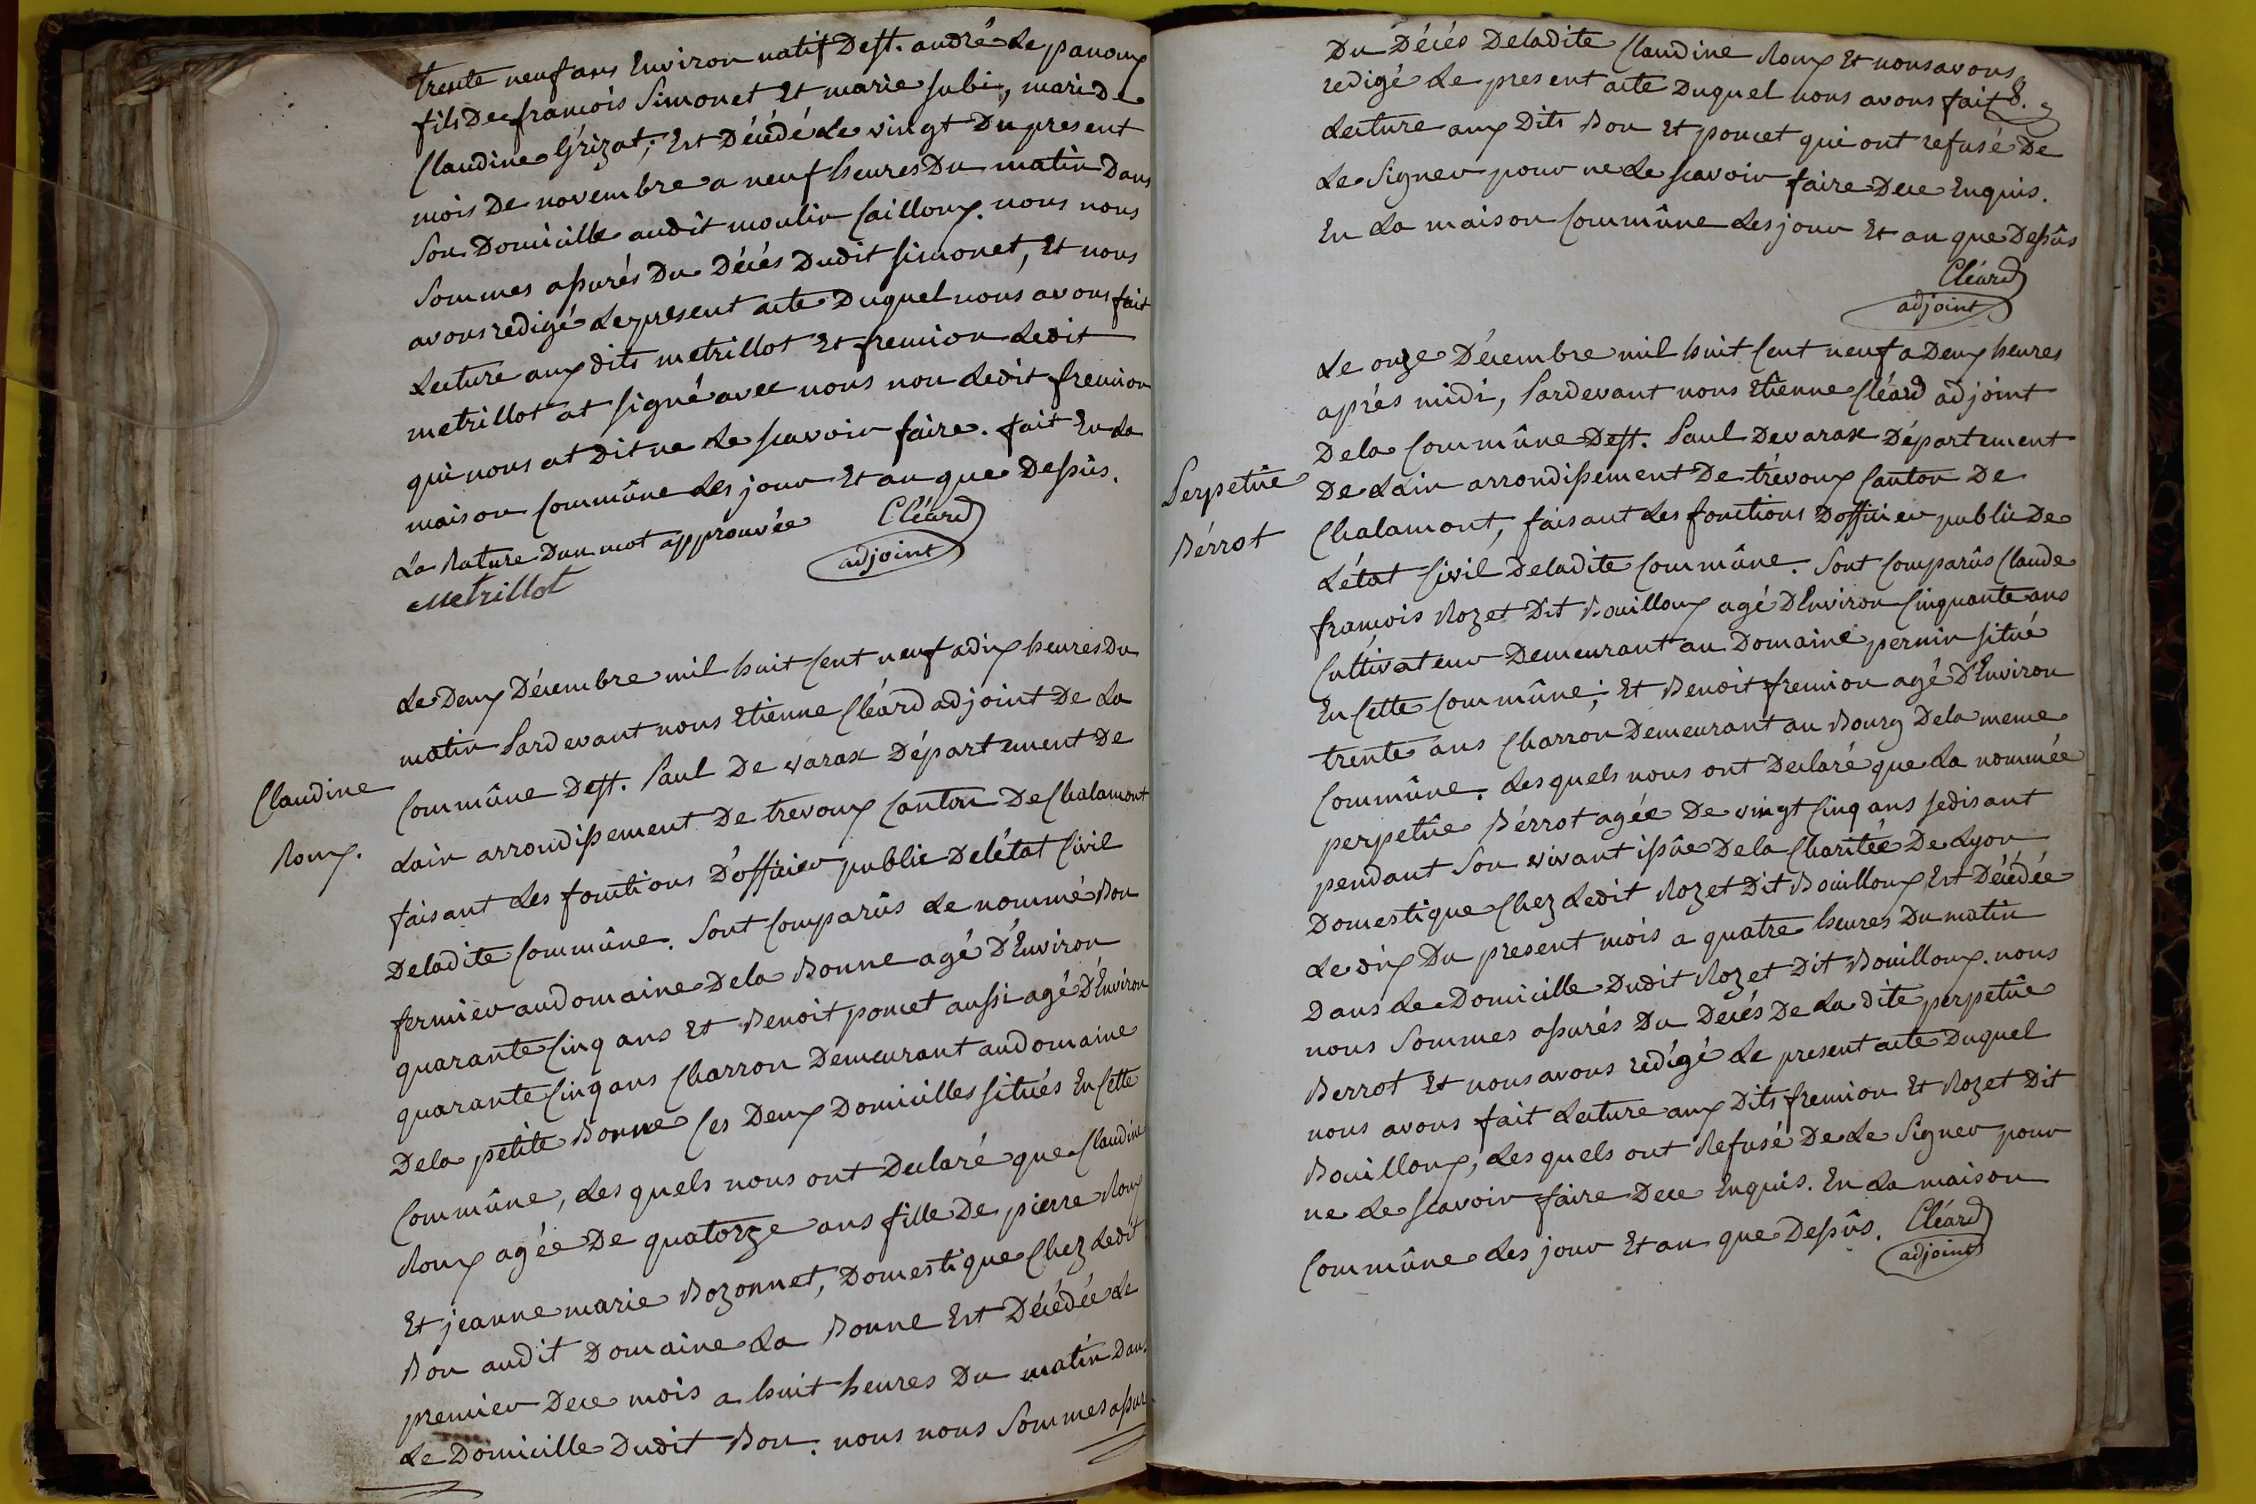 trente neuf ans Environ natif De st. andré Le panoux
fils De francois Simonet Et marie subi, mari De
Claudine Grizat; Est Décédé Le vingt Du present
mois De novembre a neuf heures Du matin Dans
Son Domicille audit moulin Cailloux. nous nous
Sommes assurés Du Décés Dudit simonet, Et nous
avons redigé Le present acte Duquel nous avons fait
Lecture aux dits metrillot Et fremion Ledit
metrillot at signé avec nous non Ledit fremion
qui nous at dit ne Le scavoir faire. fait En La
maison Commûne Les jour Et an que Dessûs.
La Rature D'un mot approuvée
Cléard
adjoint
Metrillot
Claudine
Roux.
Le Deux Décembre mil huit Cent neuf a dix heures Du
matin Pardevant nous Etienne Cléard adjoint De La
Commûne De st. Paul De varax Département De
Lain arrondissement De trevoux Canton De Chalamont
faisant Les fonctions D'officier public De L'état Civil
De ladite Commûne. Sont Comparûs Le nommé Bon
fermier au domaine De la Bonne agé D'Environ
quarante Cinq ans Et Benoit poncet aussi agé D'Environ
quarante Cinq ans Charron Demeurant au domaine
De la petite Bonne Ces Deux Domicilles situés En Cette
Commûne, Les quels nous ont Declaré que Claudine
Roux agée De quatorze ans fille De pierre Roux
Et jeanne marie Bozonnet, Domestique Chez Ledit
Bon audit Domaine La Bonne Est Décédée Le
premier De ce mois a huit heures Du matin Dans
Le Domicille Dudit Bon. nous nous Sommes assurés
Du Décés De ladite Claudine Roux Et nous avons
redigé Le present acte Duquel nous avons fait 8.
Lecture aux Dits Bon Et poncet qui ont refusé De
Le Signer pour ne Le scavoir faire De ce Enquis.
En La maison Commûne Les jour Et an que Dessûs
Cléard
adjoint
Perpetûe
Bérrot
Le onze Décembre mil huit Cent neuf a Deux heures
aprés midi, Pardevant nous Etienne Cléard adjoint
De la Commûne De st. Paul De varax Département
De Lain arrondissement De trévoux Canton De
Chalamont, faisant Les fonctions D'officier public De
L'état Civil De ladite Commûne. Sont Comparûs Claude
francois Rozet Dit Bouilloux agé D'Environ Cinquante ans
Cultivateur Demeurant au Domaine pernin situé
En Cette Commûne; Et Benoit fremion agé D'Environ
trente ans Charron Demeurant au Bourg De la meme
Commûne. Les quels nous ont Declaré que La nommée
perpetûe Bérrot agée De vingt Cinq ans se disant
pendant Son vivant issûe De la Charitée De Lyon
Domestique Chez Ledit Rozet Dit Bouilloux Est Décédée
Le dix Du present mois a quatre heures Du matin
Dans Le Domicille Dudit Rozet Dit Bouilloux. nous
nous Sommes assurés Du Decés De La dite perpetûe
Berrot Et nous avons redigé Le present acte Duquel
nous avons fait Lecture aux Dits fremion Et Rozet Dit
Bouilloux, Les quels ont Refusé De Le Signer pour
ne Le scavoir faire De ce Enquis. En La maison
Commûne Les jour Et an que Dessûs.
Cléard
adjoint